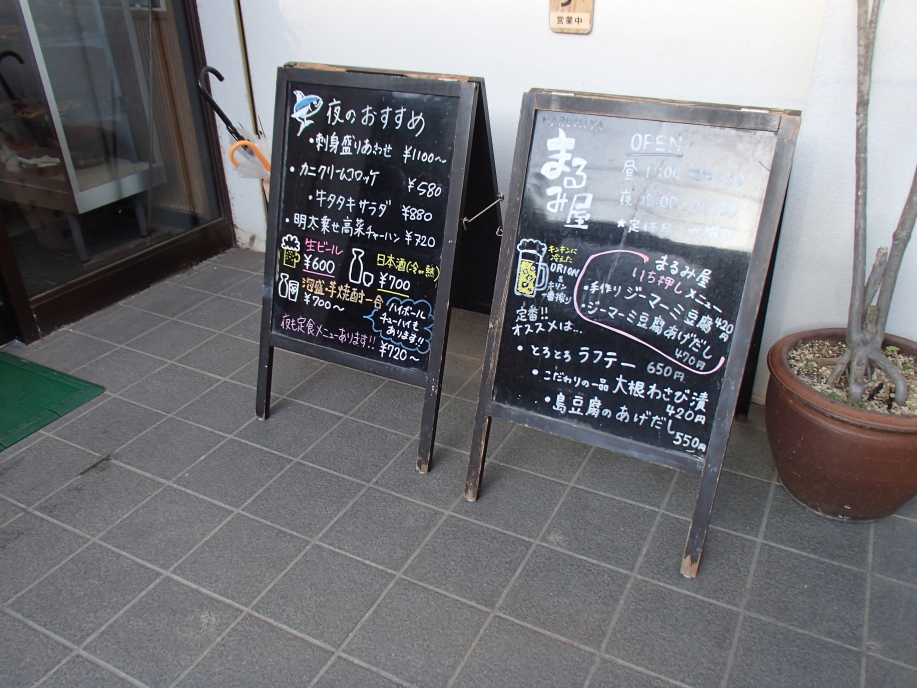 営業中
夜のおすすめ
・刺身盛りあわせ ¥1100〜
・カニクリームコロッケ ¥580
・牛タタキサラダ ¥880
・明太乗せ高菜チャーハン ¥720
生ビール
¥600
日本酒(冷or熱)
¥700
泡盛・芋焼酎一合
¥700〜
ハイボール
チューハイも
あります!!
¥720〜
夜も定食メニューあります!!
まるみ屋
OPEN
昼 11:00
夜 18:00
★定休日
キンキンに
冷えた
ORION
&
キリン
一番搾り
まるみ屋
いち押しメニュー
・手作りジーマーミ豆腐 420円
・ジーマーミ豆腐あげだし
470円
定番!!
オススメは…
・とろとろ ラフテー 650円
・こだわりの一品 大根わさび漬
420円
・島豆腐のあげだし 550円